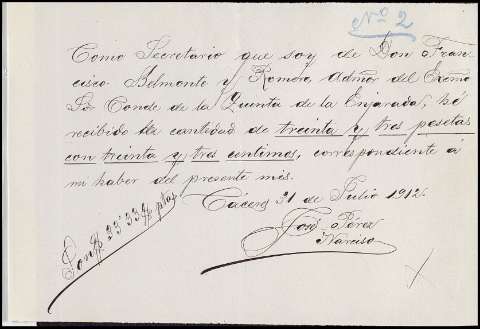 Nº 2
Como Secretario que soy de Don Fran-
cisco Belmonte y Romero Admor del Excmo
Sr Conde de la Quinta de la Enjarada, hé
recibido la cantidad de treinta y tres pesetas
con treinta y tres centimos, correspondiente á
mi haber del presente mes.
Cáceres 31 de Julio 1912.
José Pérez
Narciso
Son 33'33 ptas